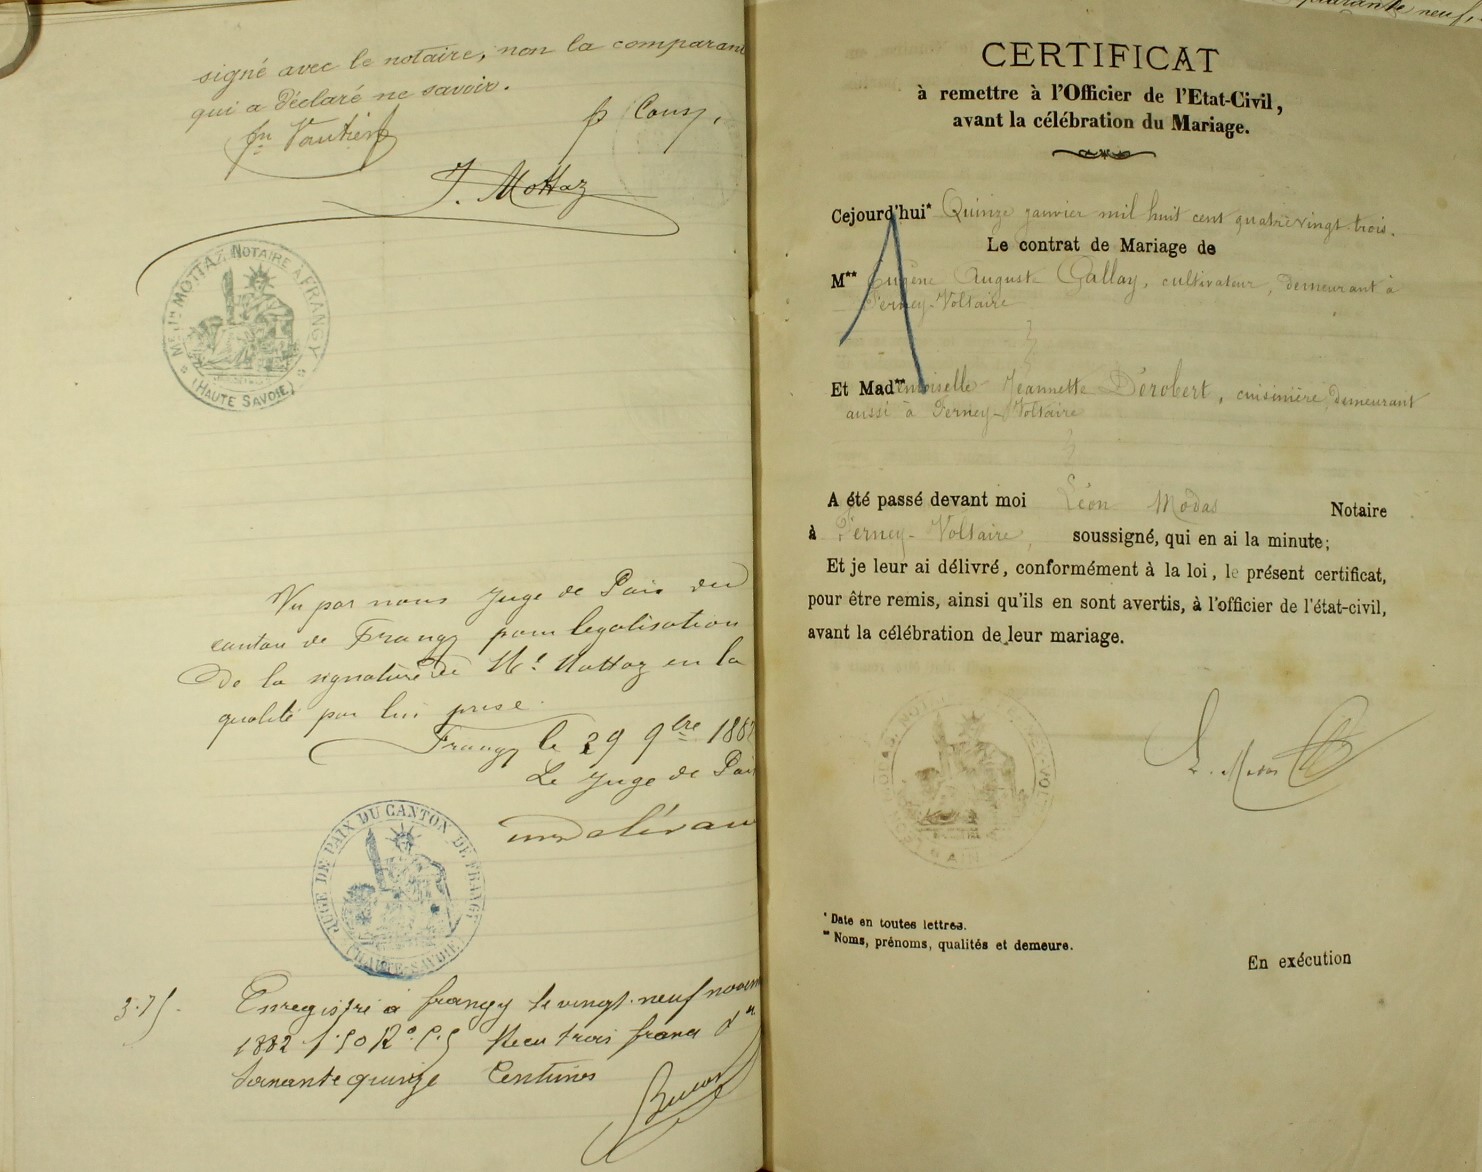 signé avec le notaire, non la comparant
qui a déclaré ne savoir.
fn Vautier
J. Mottaz
Me Jn MOTTAZ NOTAIRE A FRANGY
(HAUTE SAVOIE)
Vu par nous Juge de Paix du
canton de Frangy pour legalisation
De la signature de Me Mottaz en la
qualité par lui prise.
Frangy le 29 9bre 1882
Le Juge de Paix
JUGE DE PAIX DU CANTON DE FRANGY
(HAUTE-SAVOIE)
3.75. Enregistré à frangy le vingt-neuf novem
1882 fo 50 Ro C. 5 Reçu trois francs
soixante quinze Centimes
quarante neuf,
CERTIFICAT
à remettre à l'Officier de l'Etat-Civil,
avant la célébration du Mariage.
Cejourd'hui* Quinze janvier mil huit cent quatre vingt-trois.
Le contrat de Mariage de
M** Eugène Auguste Gallay, cultivateur, demeurant à
Ferney-Voltaire
Et Mad**emoiselle Jeannette Dérobert, cuisinière, demeurant
aussi à Ferney-Voltaire
A été passé devant moi Léon Modas Notaire
à Ferney-Voltaire, soussigné, qui en ai la minute;
Et je leur ai délivré, conformément à la loi, le présent certificat,
pour être remis, ainsi qu'ils en sont avertis, à l'officier de l'état-civil,
avant la célébration de leur mariage.
L. Modas
AIN
* Date en toutes lettres.
** Noms, prénoms, qualités et demeure.
En exécution